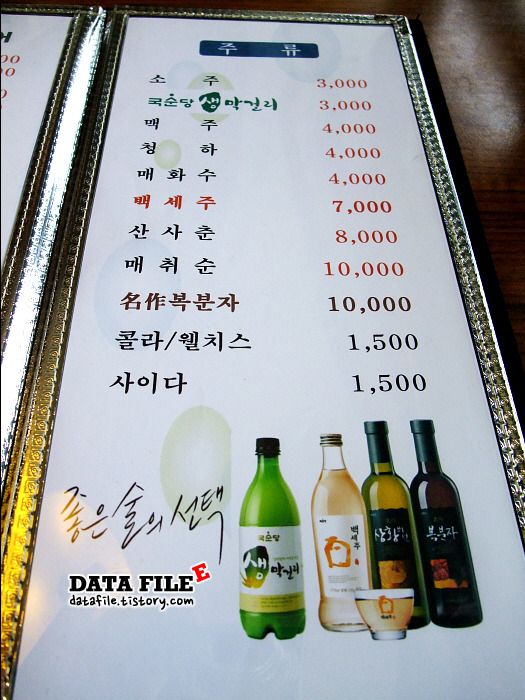 주 류
소 주 3,000
국순당 생 막걸리 3,000
맥 주 4,000
청 하 4,000
매 화 수 4,000
백 세 주 7,000
산 사 춘 8,000
매 취 순 10,000
名作복분자 10,000
콜라/웰치스 1,500
사이다 1,500
좋은 술의 선택
국순당
생
막걸리
백세주
복분자
DATA FILE E
datafile.tistory.com